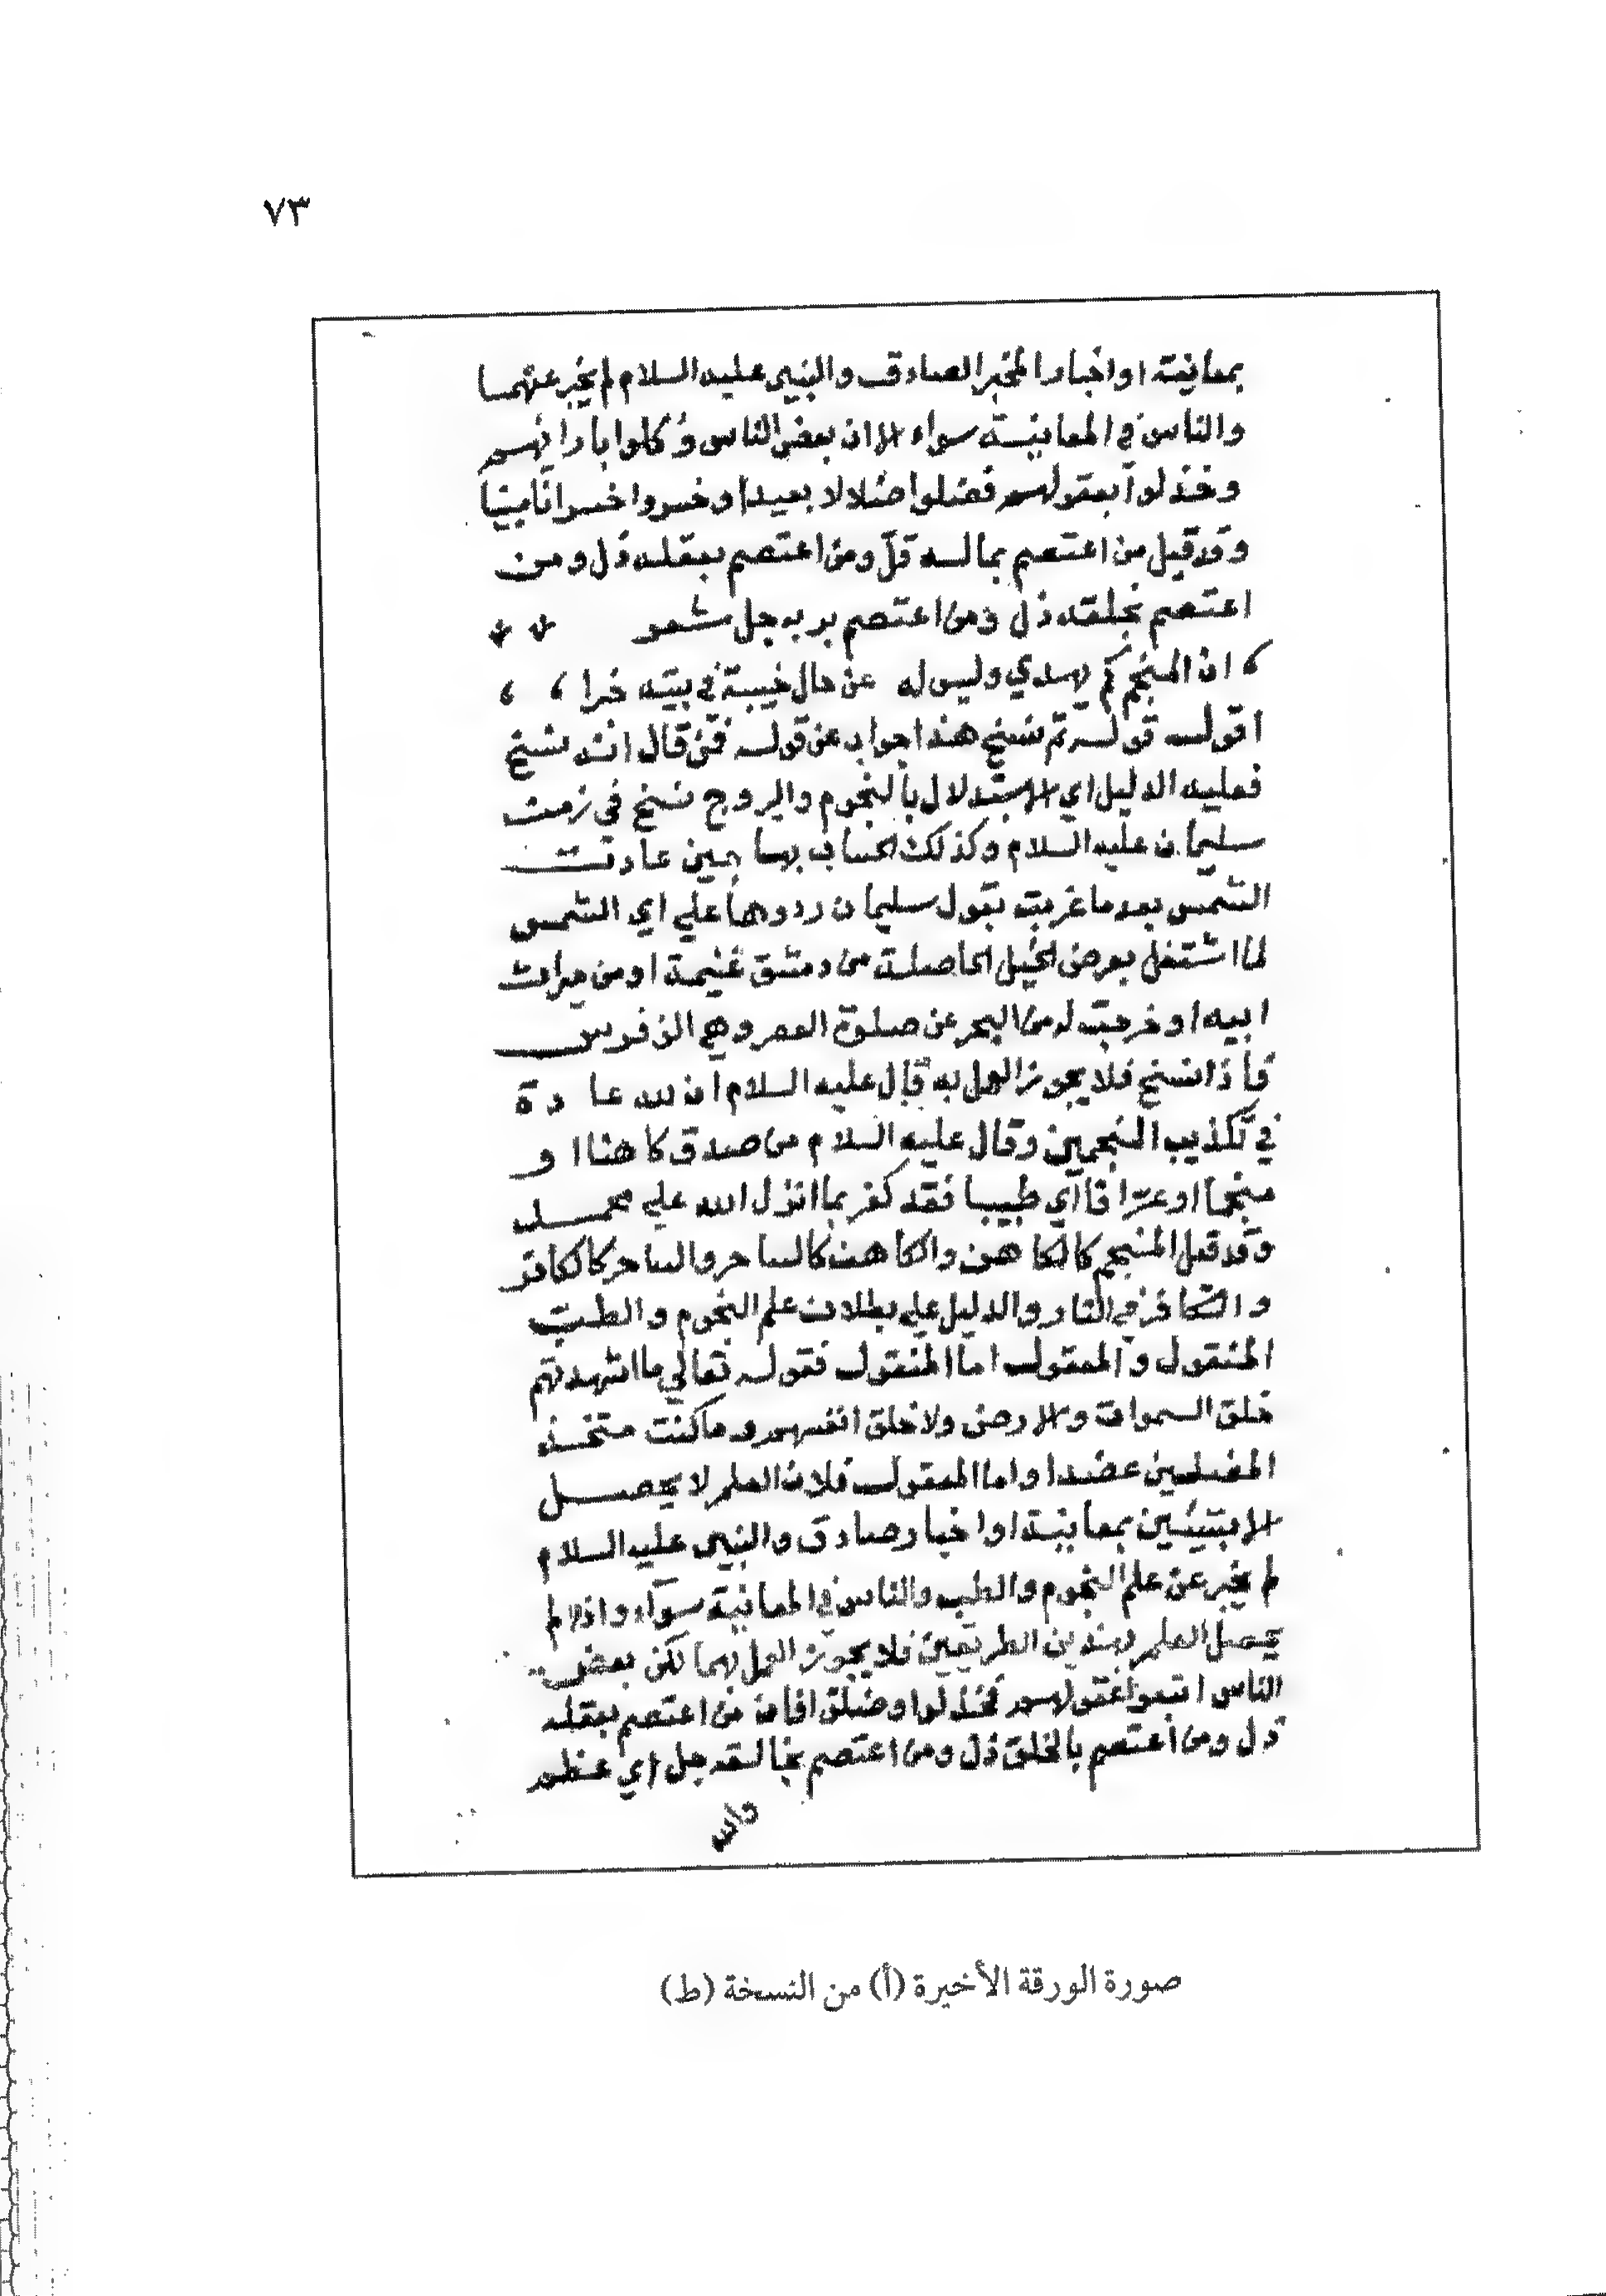 ٧٣
بمعاينة او اخبار المخبر الصادق والنبي عليه السلام لم يخبر عنهما
والناس في المعاينة سواء الا ان بعض الناس وكلوا بارائهم
وخذلوا بعقولهم فضلوا ضلالا بعيدا وخسروا خسرانا مبينا
وقد قيل من اعتصم بماله قل ومن اعتصم بعقله ذل ومن
اعتصم بخلقه ذل ومن اعتصم بربه جل شعر
ان المنجم كم يهدي وليس له عن حال خيبة في بيته خرا
اقول قوله ثم نسخ هذا جواب عن قوله فمن قال انه نسخ
فعليه الدليل اي الاستدلال بالنجوم والبروج نسخ في زمن
سليمان عليه السلام وكذلك الحساب بها حين عادت
الشمس بعد ما غربت بقول سليمان ردوها علي اي الشمس
لما اشتغل بعرض الخيل الحاصلة من دمشق غنيمة او من ميراث
ابيه او خرجت له من البحر عن صلوة العصر وهي الف فرس
فاذا نسخ فلا يجوز العمل به قال عليه السلام ان لله عادة
في تكذيب المنجمين وقال عليه السلام من صدق كاهنا او
منجما او عرافا اي طبيبا فقد كفر بما انزل الله علي محمد
وقد قيل المنجم كالكاهن والكاهن كالساحر والساحر كالكافر
والكافر في النار والدليل علي بطلان علم النجوم والطب
المنقول والمعقول اما المنقول فقوله تعالي ما اشهدتهم
خلق السموات والارض ولا خلق انفسهم وما كنت متخذ
المضلين عضدا واما المعقول فلان العلم لا يحصل
الا بمعاينة او اخبار صادق والنبي عليه السلام
لم يخبر عن علم النجوم والطب والناس في المعاينة سواء واذا لم
يحصل العلم بهذين الطريقين فلا يجوز العمل بهما لكن بعض
الناس اتبعوا عقولهم فخذلوا وضلوا فان من اعتصم بعقله
ذل ومن اعتصم بالخلق ذل ومن اعتصم بخالقه جل اي عظم
والله
صورة الورقة الأخيرة (أ) من النسخة (ط)